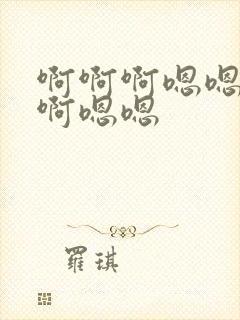 啊啊啊嗯嗯
啊嗯嗯
羅琪